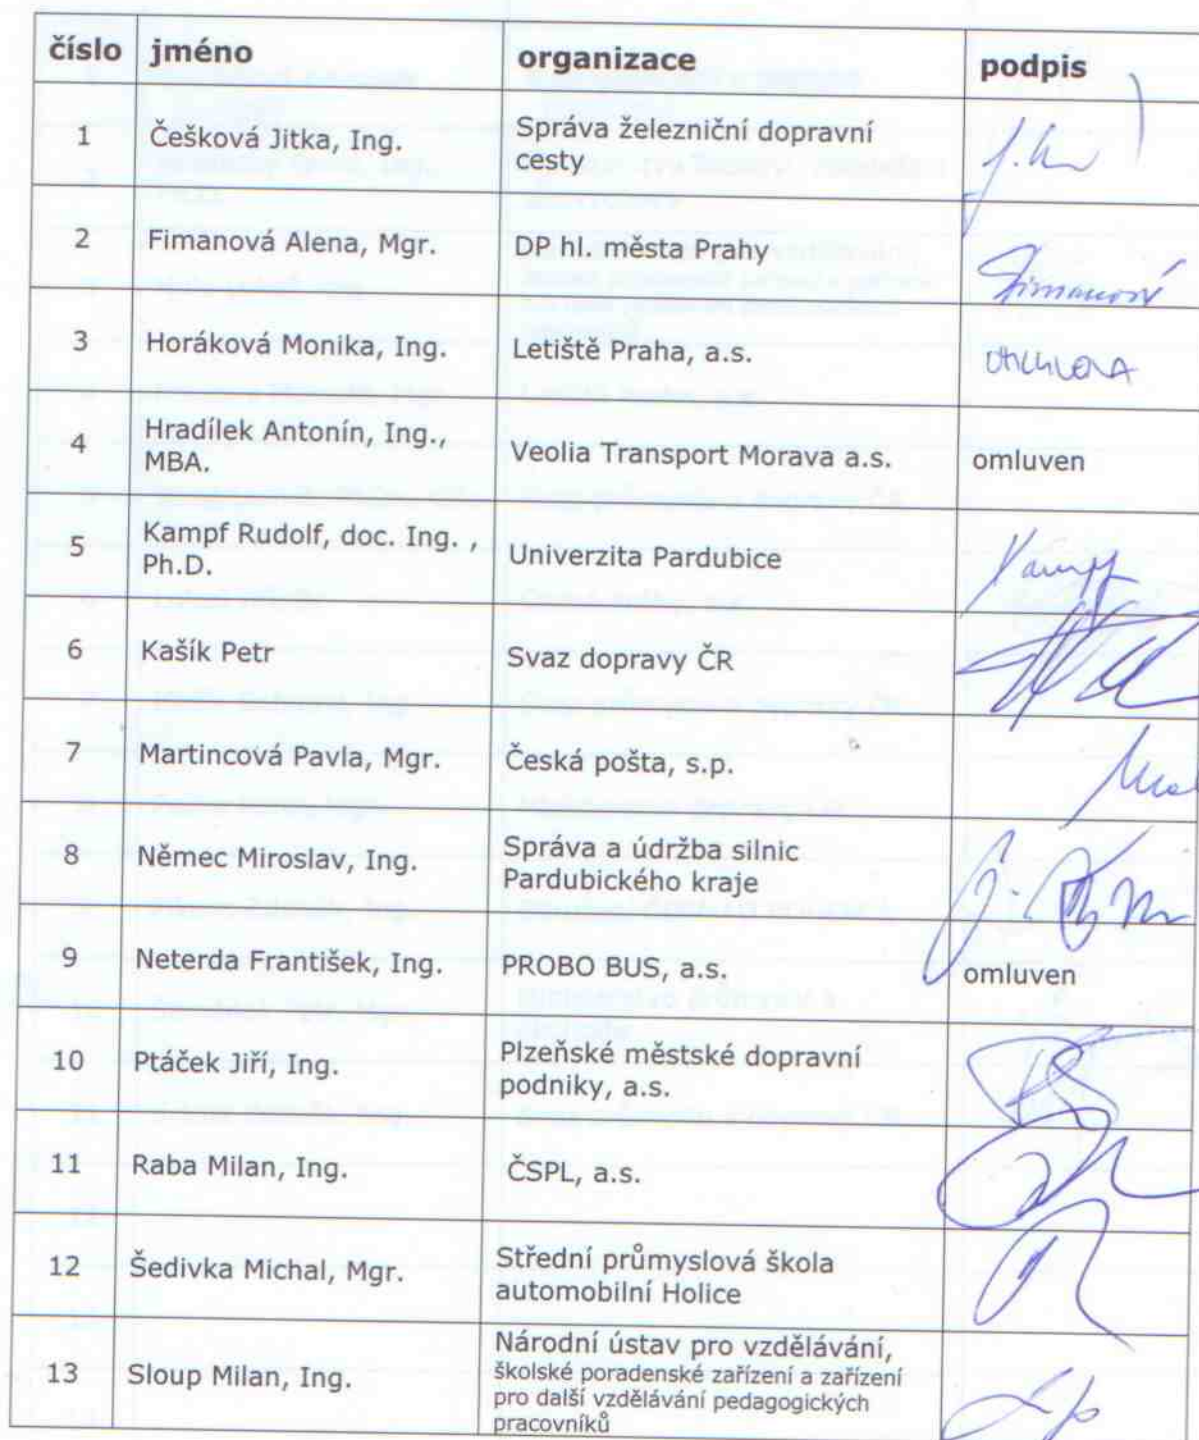 číslo jméno organizace podpis
1 Češková Jitka, Ing. Správa železniční dopravní
cesty
2 Fimanová Alena, Mgr. DP hl. města Prahy Fimanová
3 Horáková Monika, Ing. Letiště Praha, a.s.
4 Hradílek Antonín, Ing., Veolia Transport Morava a.s. omluven
MBA.
5 Kampf Rudolf, doc. Ing. , Univerzita Pardubice Kampf
Ph.D.
6 Kašík Petr Svaz dopravy ČR
7 Martincová Pavla, Mgr. Česká pošta, s.p.
8 Němec Miroslav, Ing. Správa a údržba silnic
Pardubického kraje
9 Neterda František, Ing. PROBO BUS, a.s. omluven
10 Ptáček Jiří, Ing. Plzeňské městské dopravní
podniky, a.s.
11 Raba Milan, Ing. ČSPL, a.s.
12 Šedivka Michal, Mgr. Střední průmyslová škola
automobilní Holice
13 Sloup Milan, Ing. Národní ústav pro vzdělávání,
školské poradenské zařízení a zařízení
pro další vzdělávání pedagogických
pracovníků